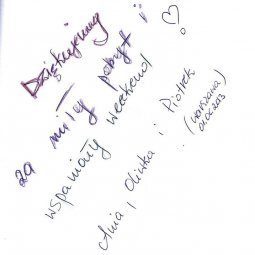 Dziękujemy
za miły pobyt i
wspaniały weekend!
Ania, Oliwka i Piotrek
(Warszawa